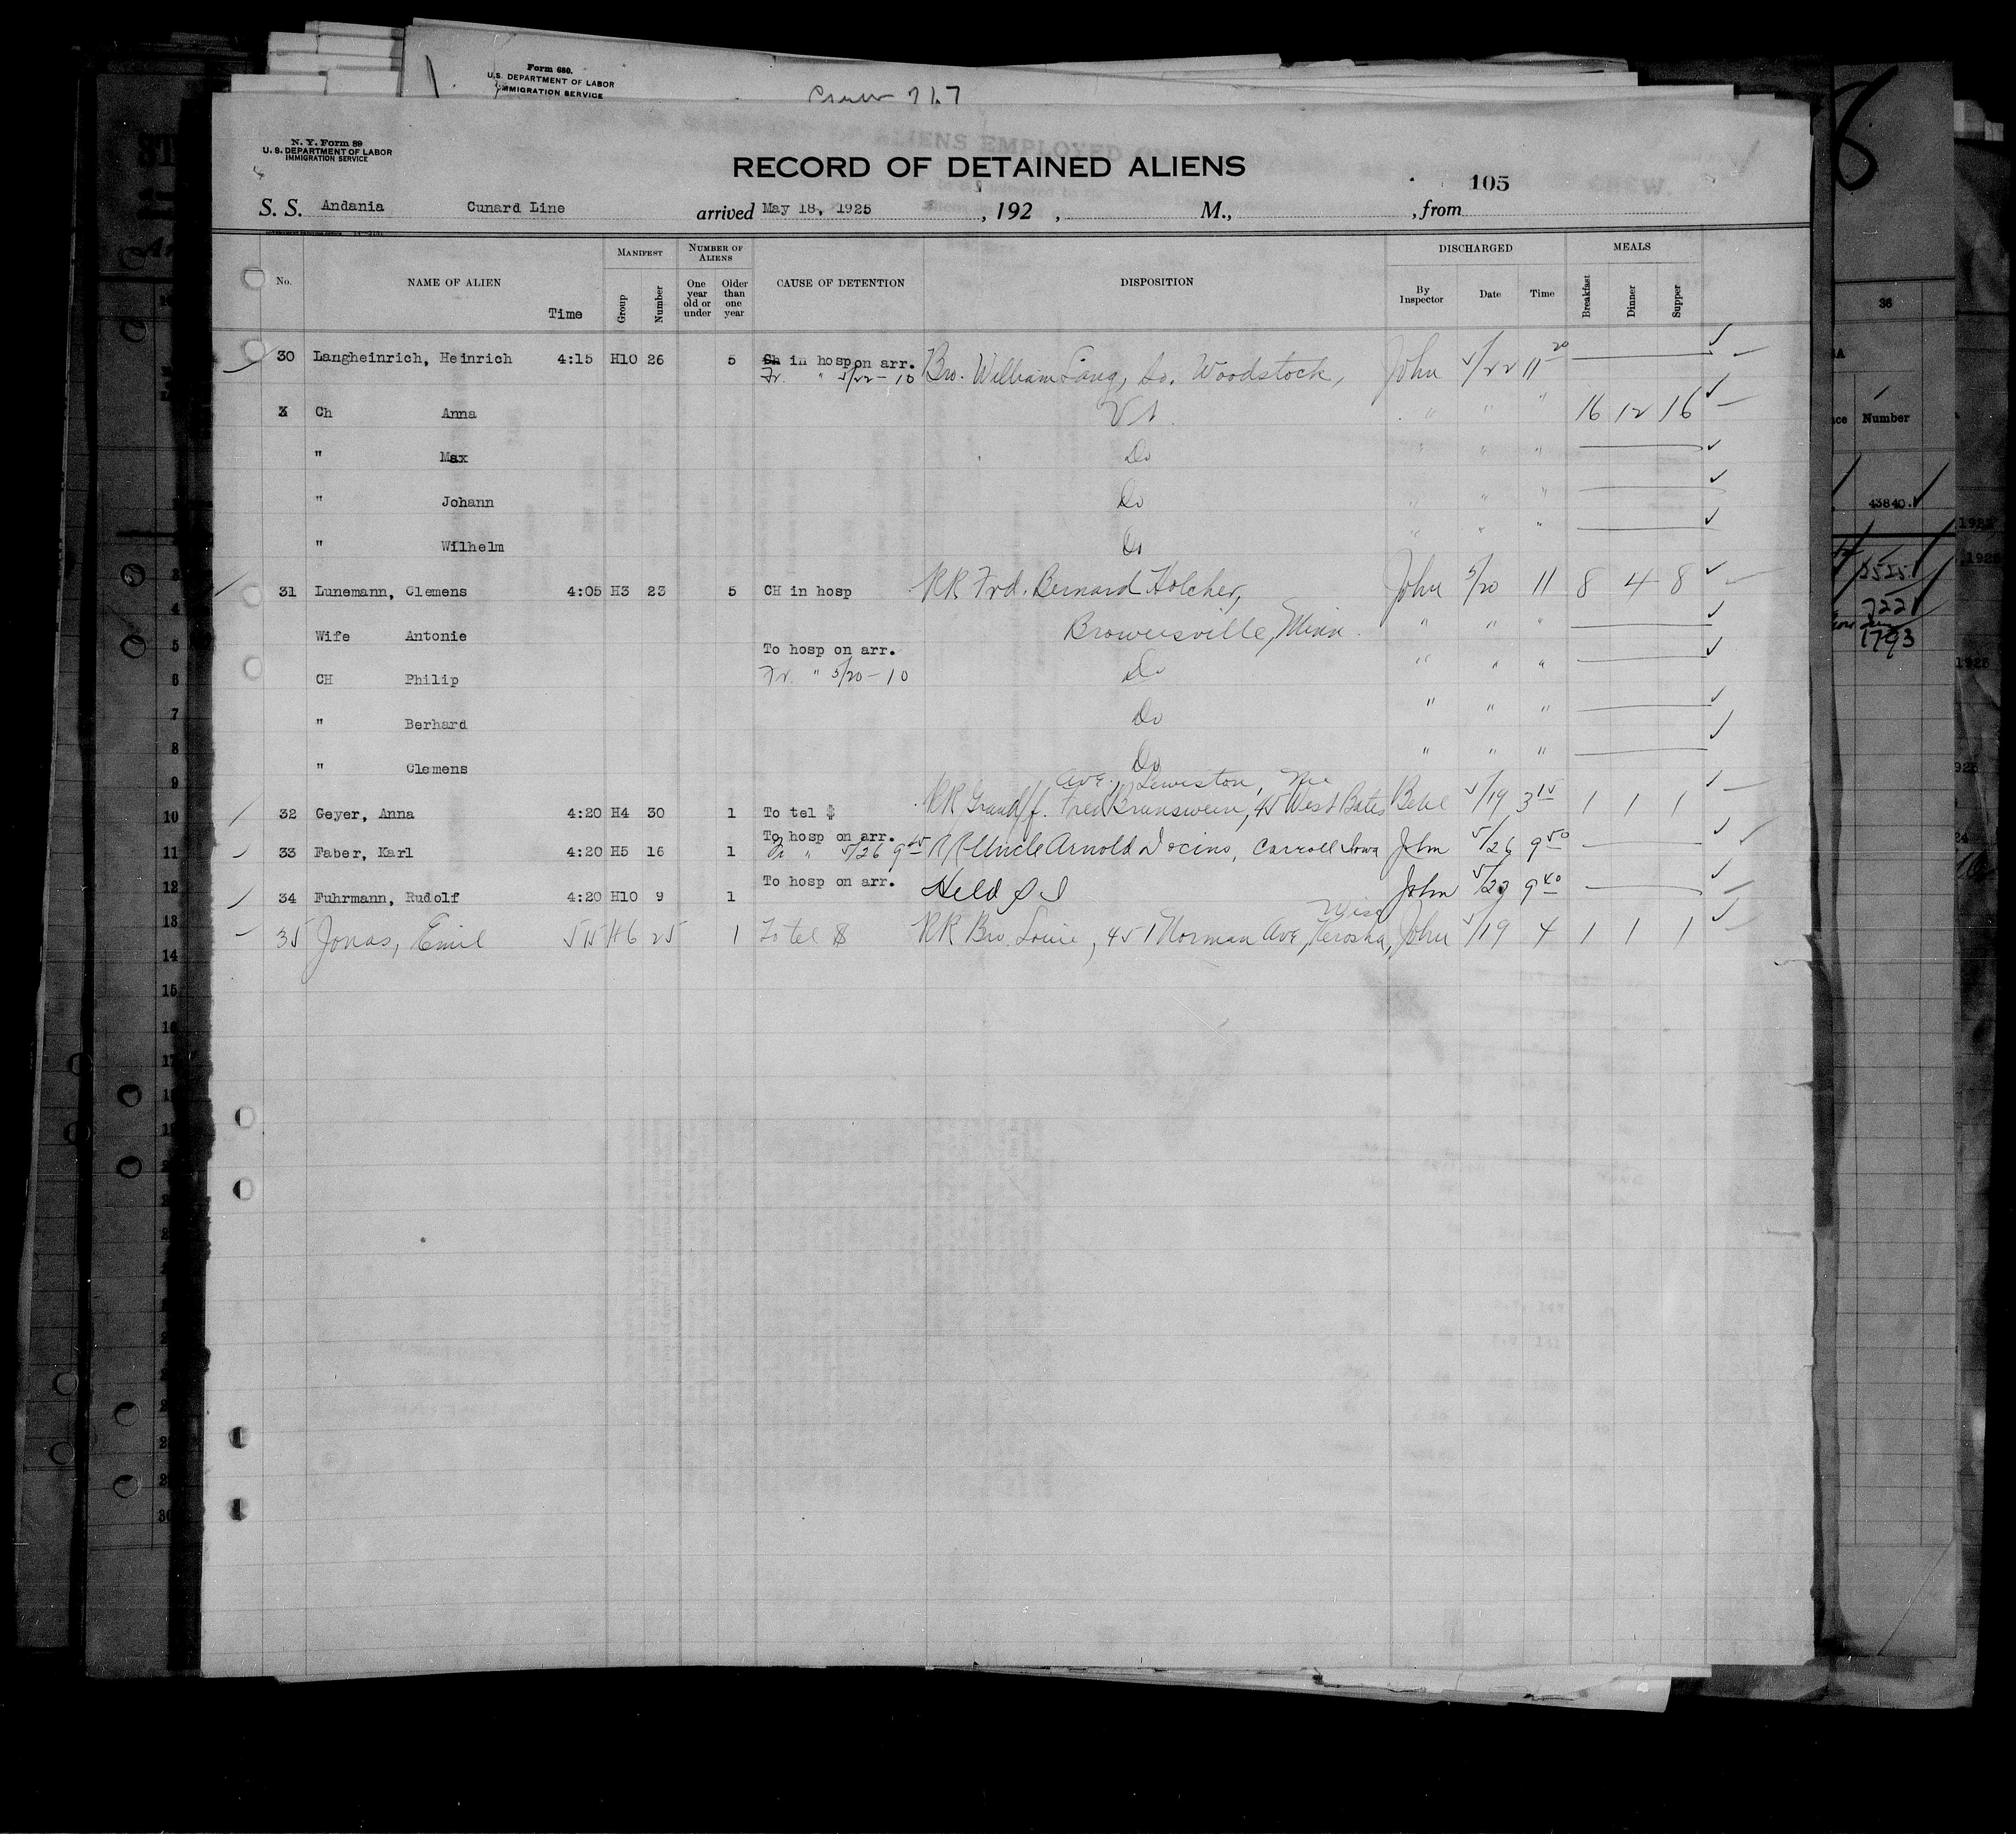 Form 680.
U.S. DEPARTMENT OF LABOR
IMMIGRATION SERVICE
N. Y. Form 89
U. S. DEPARTMENT OF LABOR
IMMIGRATION SERVICE
RECORD OF DETAINED ALIENS
105
S. S. Andania Cunard Line arrived May 18, 1925 , 192 , M., , from
No. NAME OF ALIEN Time MANIFEST Group Number NUMBER OF ALIENS One year old or under Older than one year CAUSE OF DETENTION DISPOSITION DISCHARGED By Inspector Date Time MEALS Breakfast Dinner Supper
30 Langheinrich, Heinrich 4:15 H10 26 5 Ch in hosp on arr. Bro. William Lang, So. Woodstock, John 5/22 11 20
Fr. " 5/22 - 10
X Ch Anna Vt. " " " 16 12 16
" Max Do " " "
" Johann Do " " "
" Wilhelm Do " " "
31 Lunemann, Clemens 4:05 H3 23 5 CH in hosp RR Frd. Bernard Holcher, John 5/20 11 8 4 8
Wife Antonie Browersville, Minn. " " "
To hosp on arr.
CH Philip Fr. " 5/20 - 10 Do " " "
" Berhard Do " " "
" Clemens Do " " "
Ave., Lewiston, Me
32 Geyer, Anna 4:20 H4 30 1 To tel $ RR Grandf. Fred Brunswein, 45 West Bates Bebe 5/19 3 15 1 1 1
To hosp on arr.
33 Faber, Karl 4:20 H5 16 1 Fr " 5/26 9 45 RR Uncle Arnold Docins, Carroll Iowa John 5/26 9 50
To hosp on arr.
34 Fuhrmann, Rudolf 4:20 H10 9 1 Held S I John 5/23 9 40
Wisc
35 Jonas, Emil 5 15 H6 25 1 To tel $ RR Bro. Louie, 451 Norman Ave, Kenosha, John 5/19 4 1 1 1
36
Number
43840.
1793